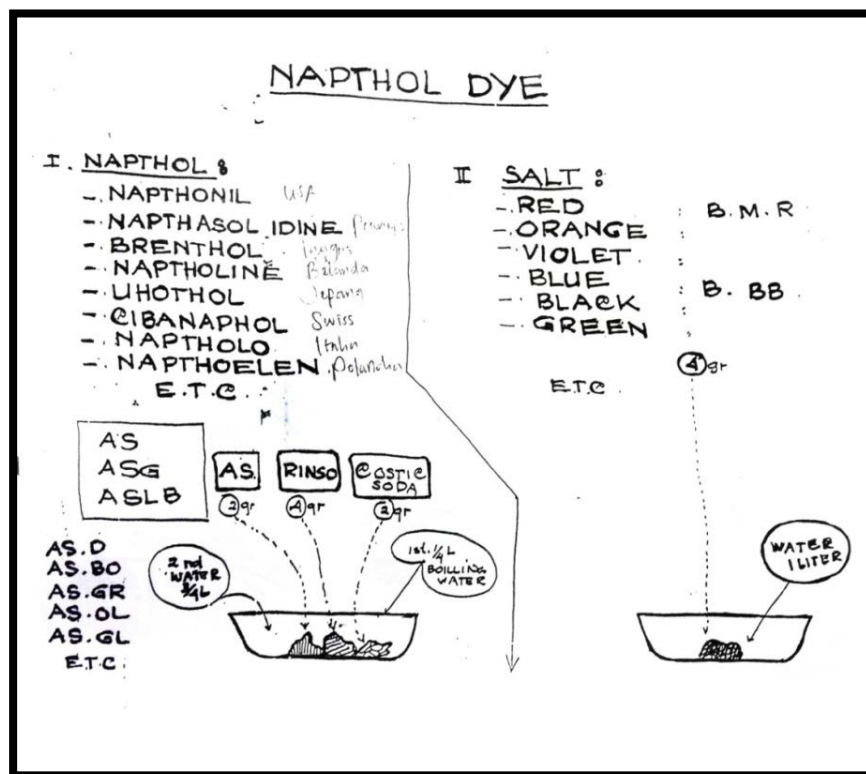 NAPTHOL DYE
I. NAPTHOL :
- NAPTHONIL USA
- NAPTHASOL IDINE
- BRENTHOL
- NAPTHOLINE Belanda
- UHOTHOL Jepang
- CIBANAPHOL Swiss
- NAPTHOLO Italia
- NAPTHOELEN
E.T.C
AS
ASG
ASLB
AS. RINSO COSTIC SODA
2gr 4gr 2gr
AS.D
AS.BO
AS.GR
AS.OL
AS.GL
E.T.C.
2nd
WATER
3/4 L
1st. 1/4 L
BOILLING
WATER
II SALT :
- RED : B.M.R
- ORANGE :
- VIOLET :
- BLUE : B. BB
- BLACK
- GREEN
4gr
E.T.C
WATER
1 LITER